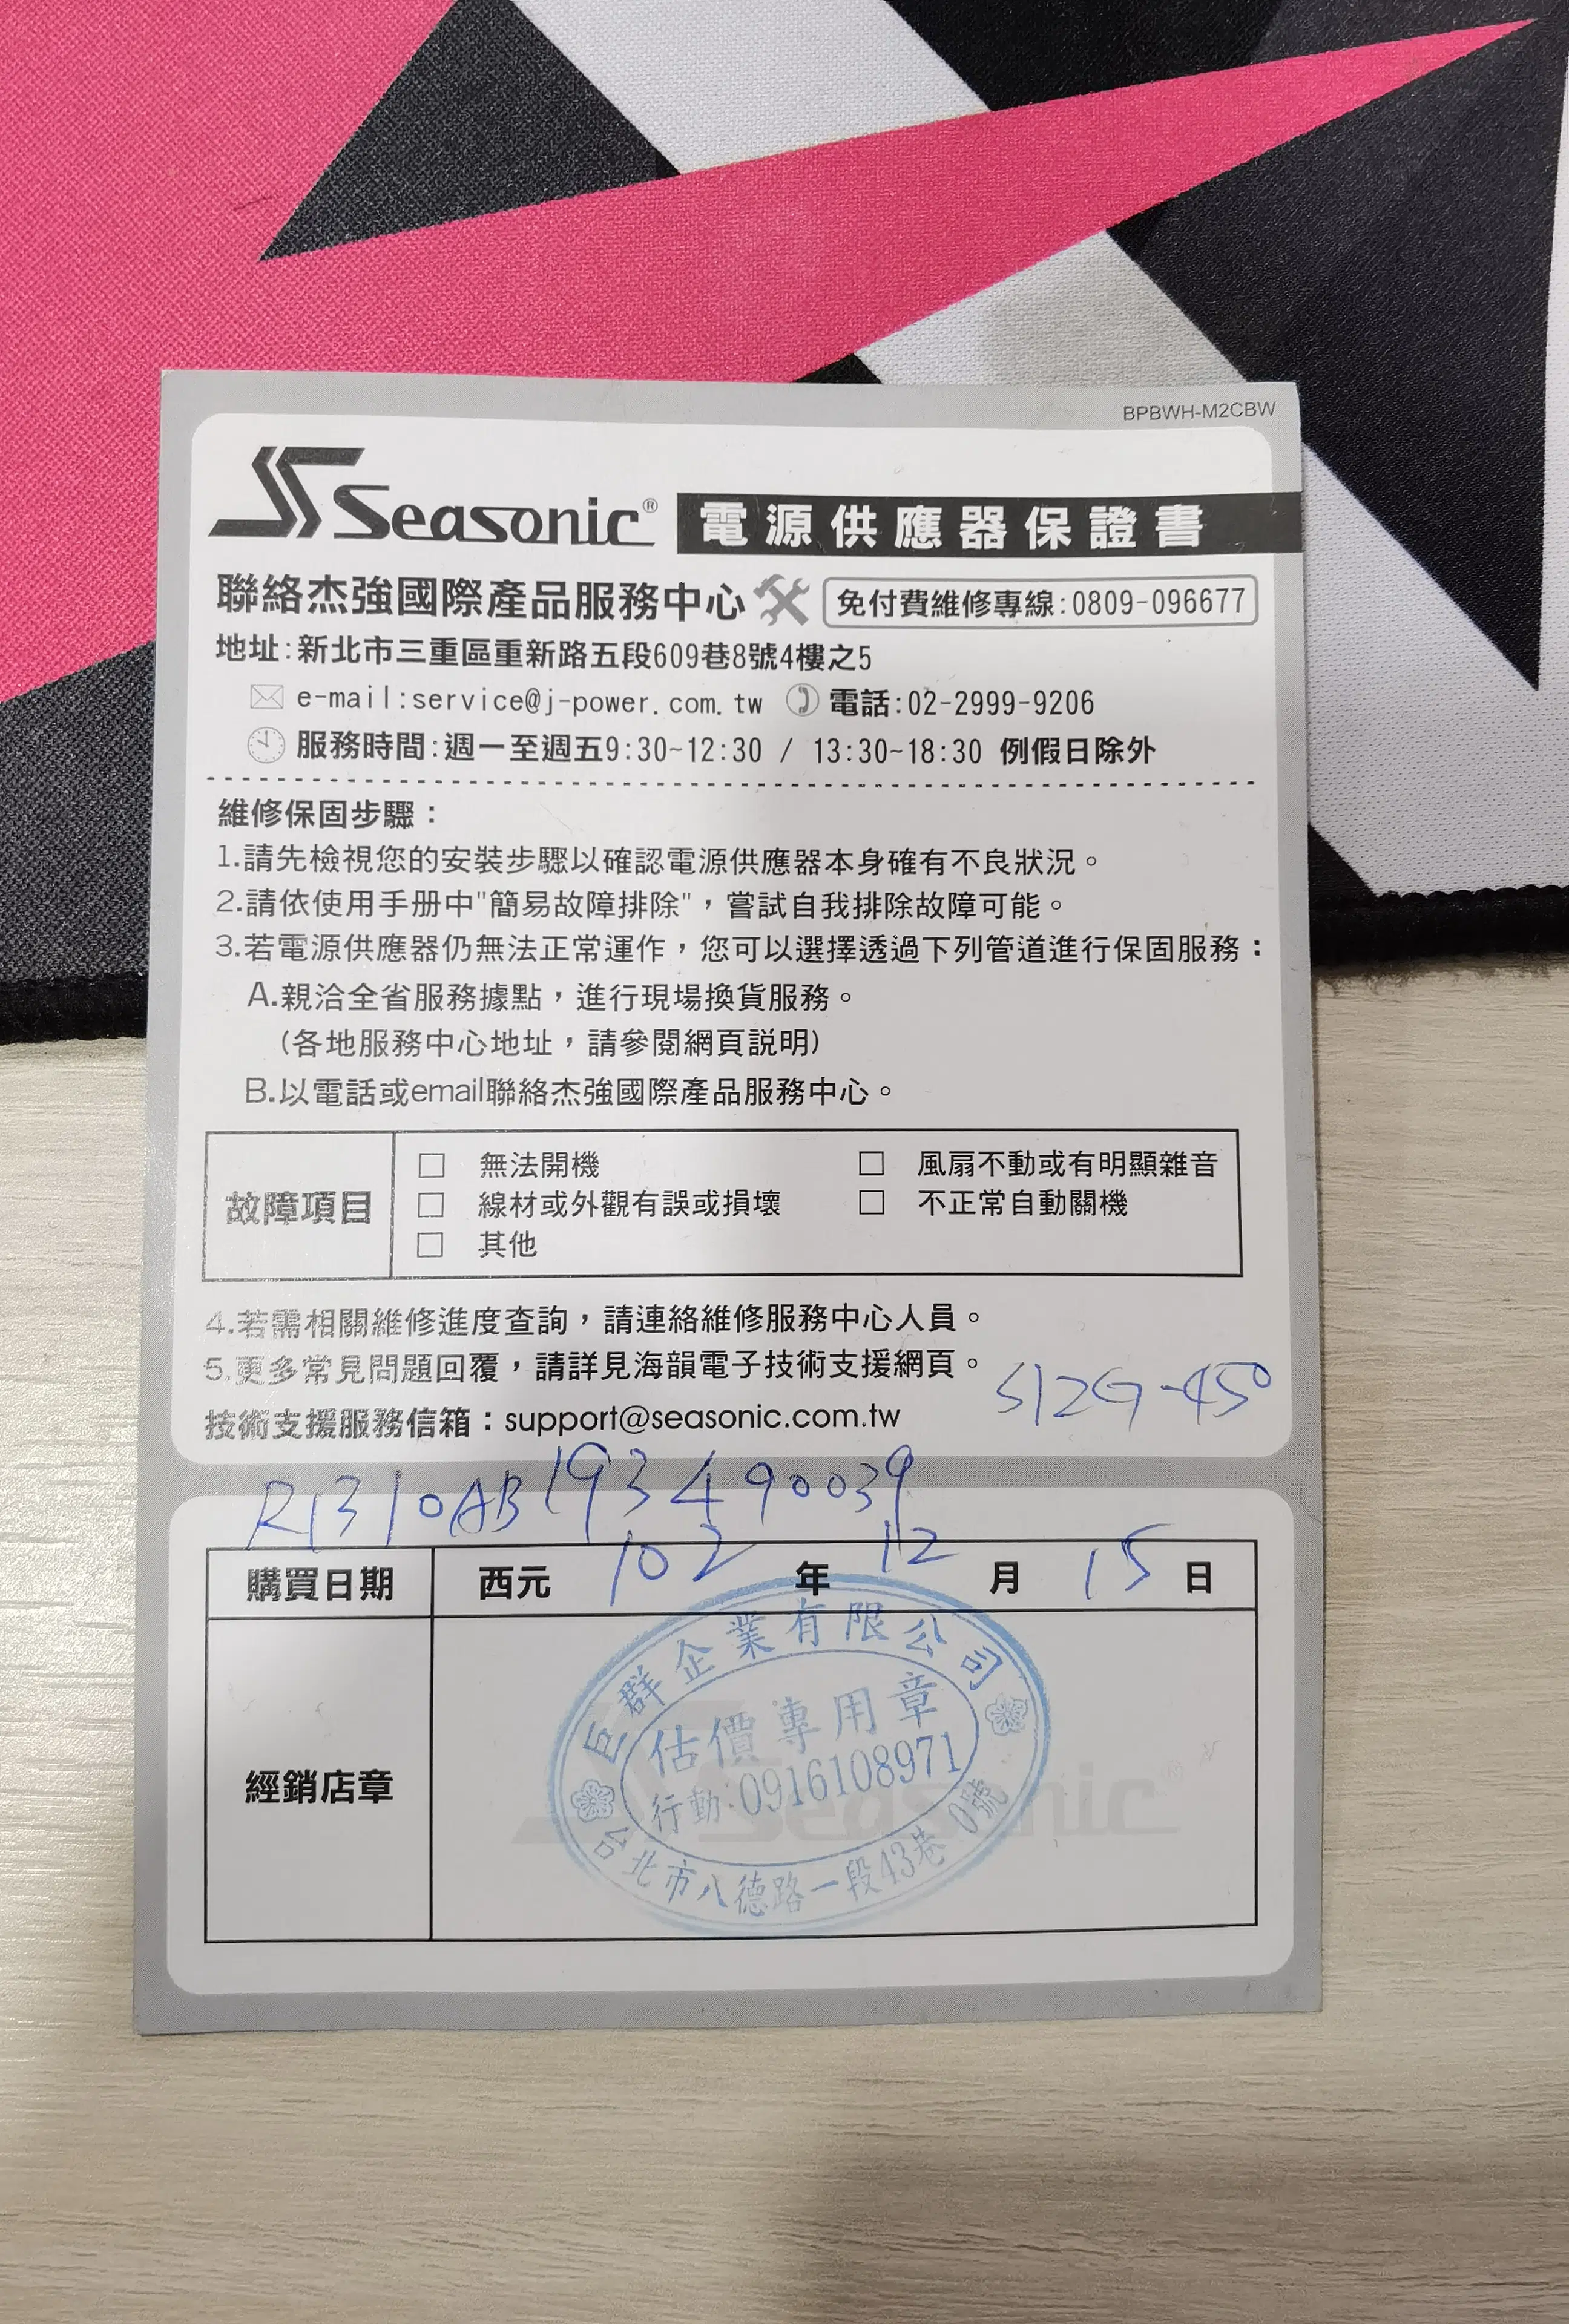 BPBWH-M2CBW
Seasonic® 電源供應器保證書
聯絡杰強國際產品服務中心 免付費維修專線:0809-096677
地址:新北市三重區重新路五段609巷8號4樓之5
e-mail:service@j-power.com.tw 電話:02-2999-9206
服務時間:週一至週五9:30~12:30 / 13:30~18:30 例假日除外
維修保固步驟：
1.請先檢視您的安裝步驟以確認電源供應器本身確有不良狀況。
2.請依使用手册中"簡易故障排除"，嘗試自我排除故障可能。
3.若電源供應器仍無法正常運作，您可以選擇透過下列管道進行保固服務：
A.親洽全省服務據點，進行現場換貨服務。
(各地服務中心地址，請參閱網頁説明)
B.以電話或email聯絡杰強國際產品服務中心。
故障項目
□ 無法開機 □ 風扇不動或有明顯雜音
□ 線材或外觀有誤或損壞 □ 不正常自動關機
□ 其他
4.若需相關維修進度查詢，請連絡維修服務中心人員。
5.更多常見問題回覆，請詳見海韻電子技術支援網頁。
S12G-450
技術支援服務信箱：support@seasonic.com.tw
R1310AB193490039
購買日期 西元 102 年 12 月 15 日
經銷店章
巨群企業有限公司
估價專用章
行動:0916108971
台北市八德路一段43巷 號
Seasonic®